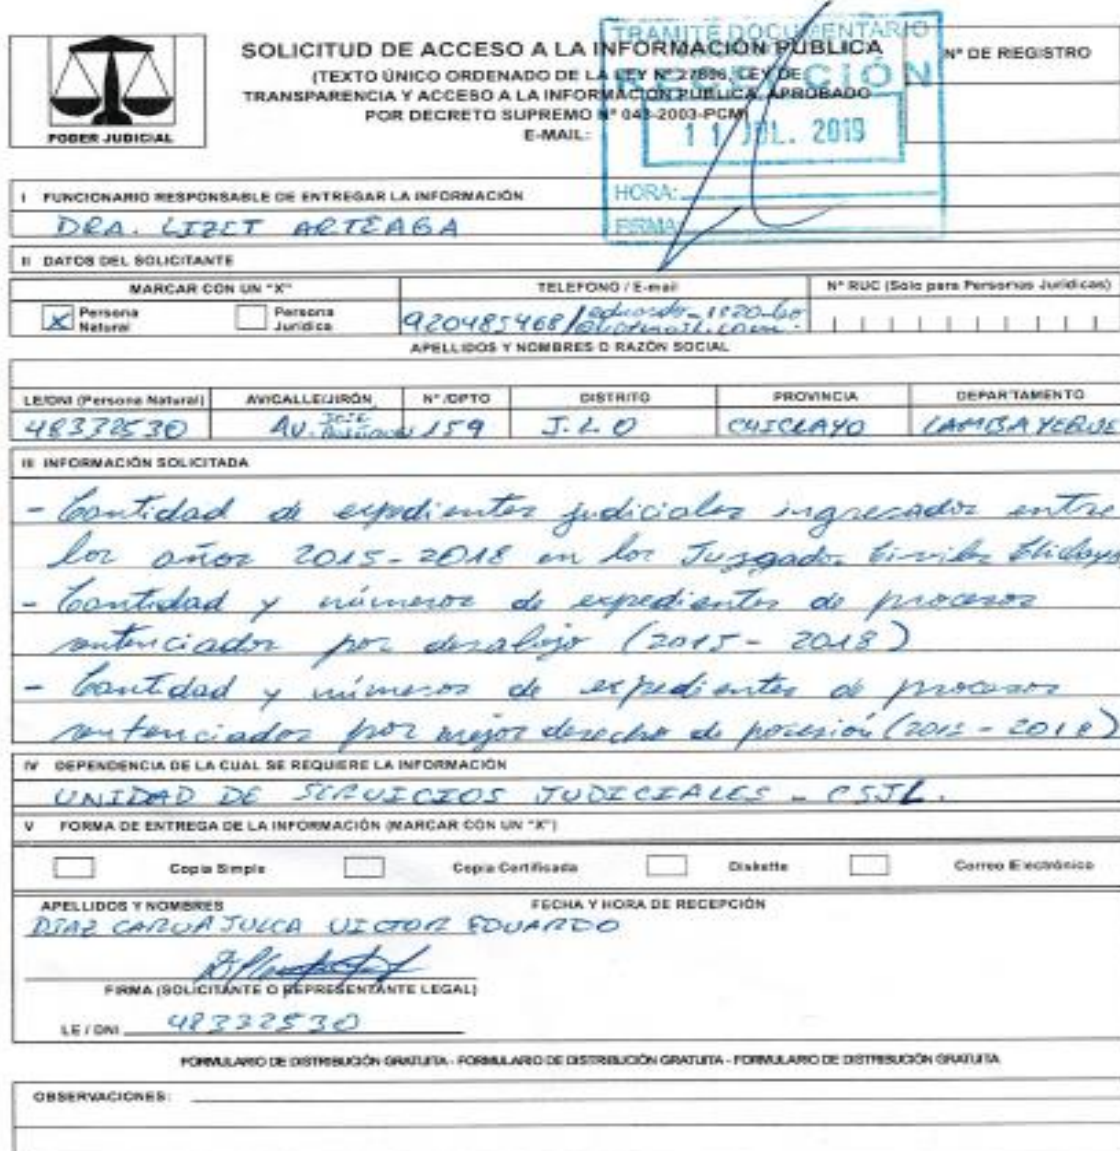 SOLICITUD DE ACCESO A LA INFORMACIÓN PÚBLICA
(TEXTO ÚNICO ORDENADO DE LA LEY N° 27806, LEY DE
TRANSPARENCIA Y ACCESO A LA INFORMACIÓN PÚBLICA, APROBADO
POR DECRETO SUPREMO N° 043-2003-PCM)
E-MAIL:
PODER JUDICIAL
N° DE RIEGISTRO
TRAMITE DOCUMENTARIO
11 JUL. 2019
HORA:
FIRMA
I FUNCIONARIO RESPONSABLE DE ENTREGAR LA INFORMACIÓN
DRA. LIZET ARTEAGA
II DATOS DEL SOLICITANTE
MARCAR CON UN "X" TELEFONO / E-mail N° RUC (Solo para Personas Juridicas)
X Persona Natural Persona Jurídica 920485468/
APELLIDOS Y NOMBRES O RAZÓN SOCIAL
LE/DNI (Persona Natural) AV/CALLE/JIRÓN N° /DPTO DISTRITO PROVINCIA DEPARTAMENTO
48332530 AV. 159 J.L.O CHICLAYO LAMBAYEQUE
III INFORMACIÓN SOLICITADA
- Cantidad de expedientes judiciales ingresados entre
los años 2015-2018 en los Juzgados Civiles Chiclayo
- Cantidad y números de expedientes de procesos
sentenciados por desalojo (2015-2018)
- Cantidad y números de expedientes de procesos
sentenciados por mejor derecho de posesión (2015-2018)
IV DEPENDENCIA DE LA CUAL SE REQUIERE LA INFORMACIÓN
UNIDAD DE SERVICIOS JUDICIALES - CSJL.
V FORMA DE ENTREGA DE LA INFORMACIÓN (MARCAR CON UN "X")
Copia Simple Copia Certificada Diskette Correo Electrónico
APELLIDOS Y NOMBRES FECHA Y HORA DE RECEPCIÓN
DIAZ CARUAJULCA VICTOR EDUARDO
FIRMA (SOLICITANTE O REPRESENTANTE LEGAL)
LE / DNI 48332530
FORMULARIO DE DISTRIBUCIÓN GRATUITA - FORMULARIO DE DISTRIBUCIÓN GRATUITA - FORMULARIO DE DISTRIBUCIÓN GRATUITA
OBSERVACIONES: